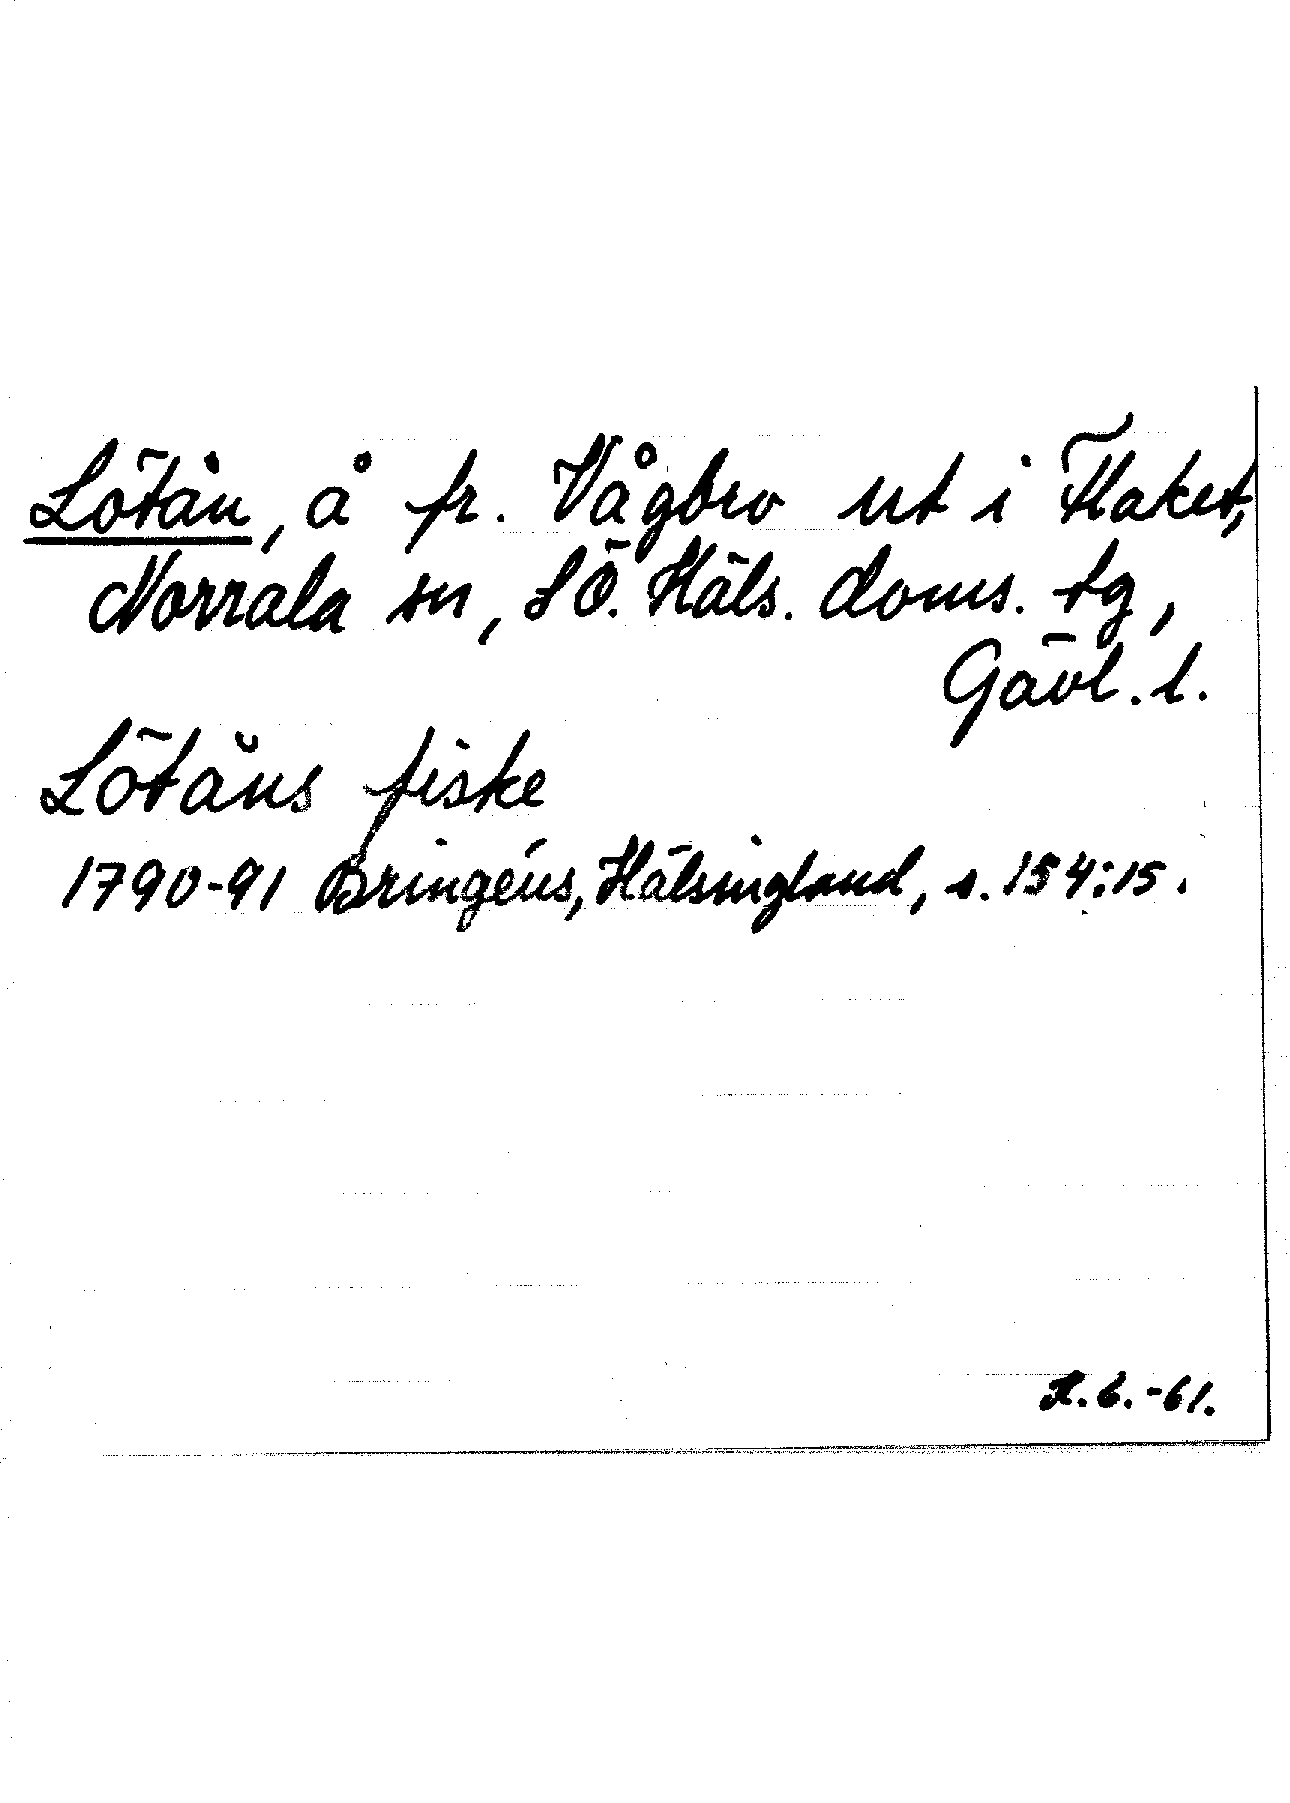 Lötån, å fr. Vågbro ut i Flaket,
Norrala sn, SÖ. Häls. doms. tg,
Gävl. l.
Lötåns fiske
1790-91 Bringéus, Hälsingland, s. 154:15.
R.6.-61.